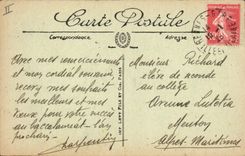 II
Carte Postale
Correspondance
Adresse
Avec mes remerciements
et mon cordial souvenir
recevez mes souhaits
les meilleurs et mes
vœux pour votre succès
au baccalauréat l'an
prochain
Monsieur Richard
élève de seconde
au collège
Avenue
Menton
Alpes Maritimes
LEVY FILS ET CIE PARIS